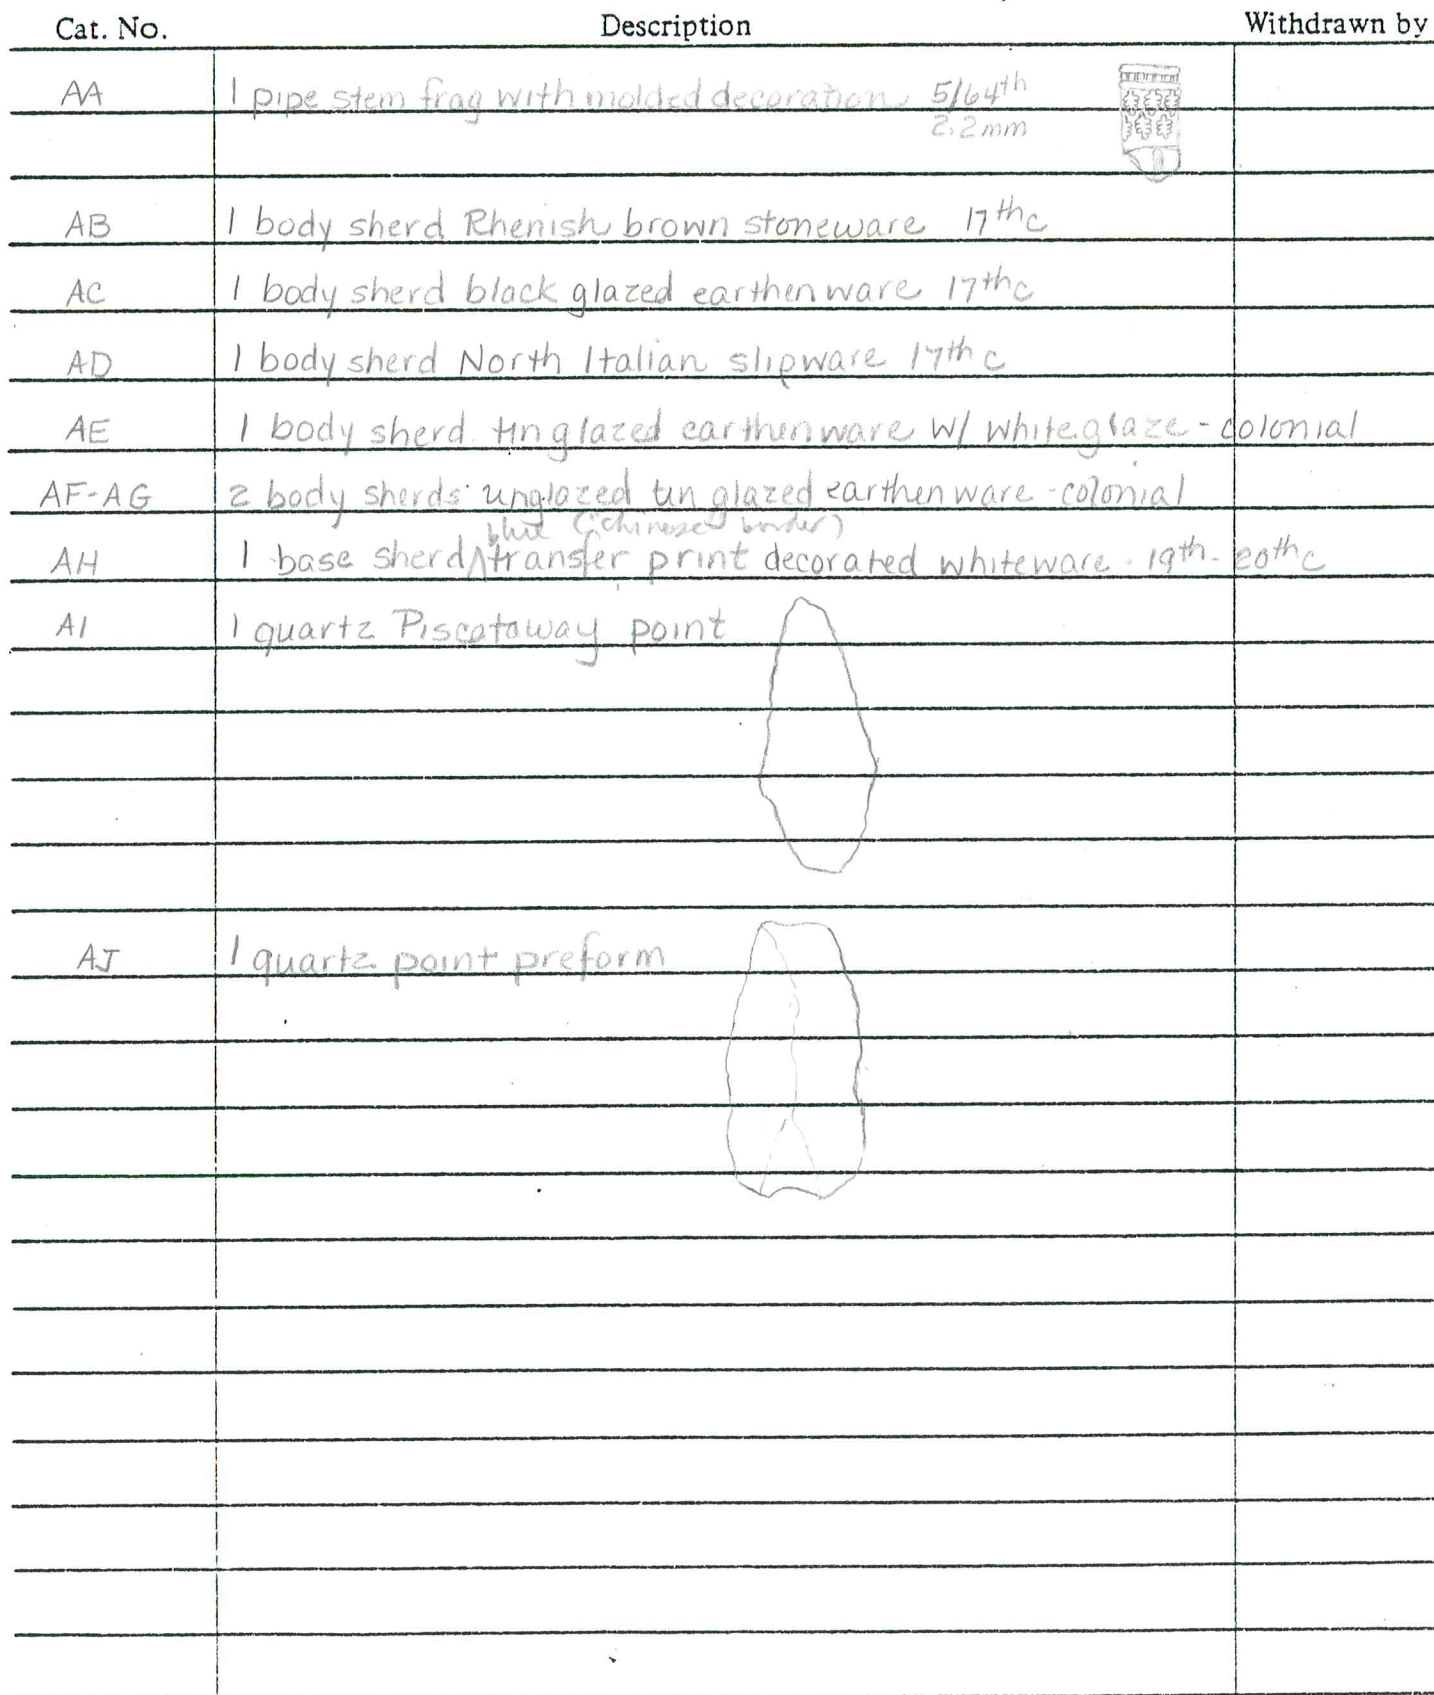 Cat. No. Description Withdrawn by
AA 1 pipe stem frag with molded decoration 5/64th
2.2mm
AB 1 body sherd Rhenish brown stoneware 17th c
AC 1 body sherd black glazed earthenware 17th c
AD 1 body sherd North Italian slipware 17th c
AE 1 body sherd tin glazed earthenware w/ white glaze - colonial
AF-AG 2 body sherds unglazed tin glazed earthenware - colonial
blue (Chinese border)
AH 1 base sherd ^ transfer print decorated whiteware - 19th - 20th c
AI 1 quartz Piscataway point
AJ 1 quartz point preform